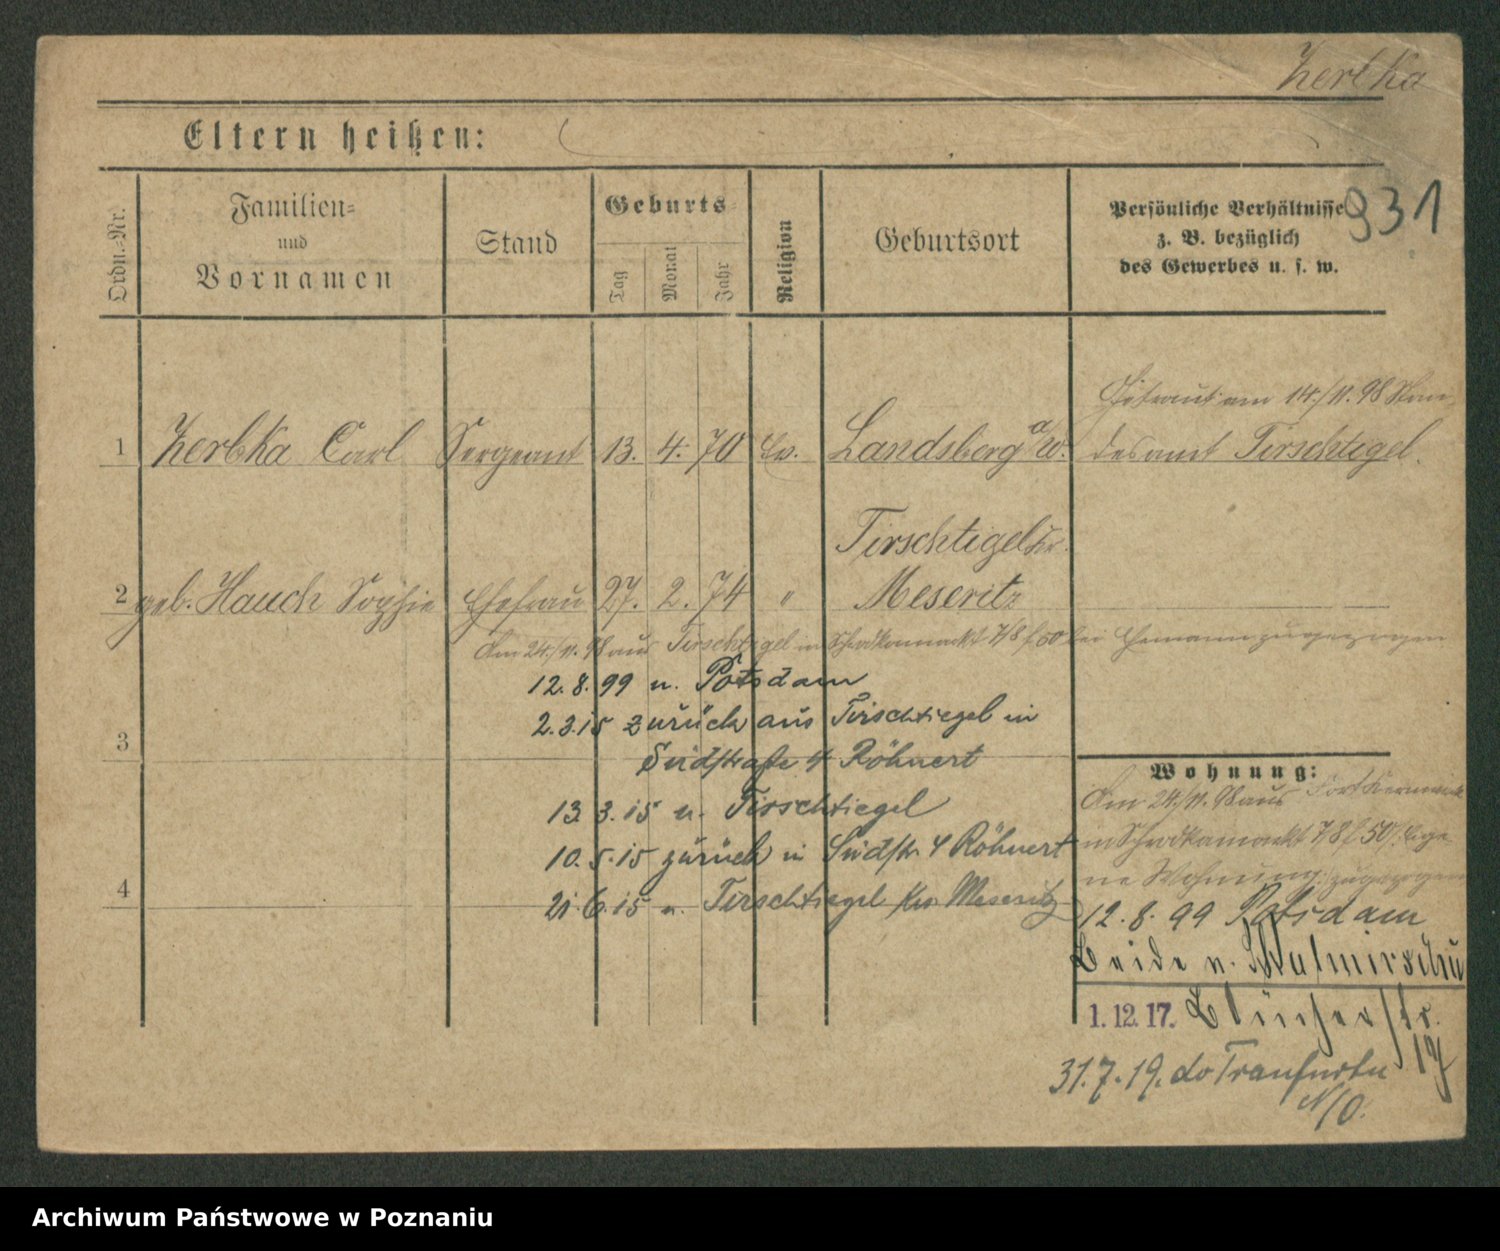 Zerbka
Eltern heißen:
931
Ordn.-Nr.
Familien-
und
Vornamen
Stand
Geburts-
Tag
Monat
Jahr
Religion
Geburtsort
Persönliche Verhältnisse
z. B. bezüglich
des Gewerbes u. s. w.
am 14./11. 98 Stan-
1 Zerbka Carl Sergeant 13. 4. 70 Ev. Landsberg a/W. desamt Tirschtigel.
Tirschtigel Kr.
2 geb. Hauch Sophie Ehefrau 27. 2. 74 " Meseritz
Am 24./11. 98 aus Tirschtigel in 7/8 bei Ehemann zugezogen
12. 8. 99 n. Potsdam
2.3.15 zurück aus Tirschtiegel in
3 Südstraße 4 Röhnert
13 3. 15 n. Tirschtiegel
10. 5. 15 zurück in Südstr. 4 Röhnert
4 21. 6. 15 n. Tirschtiegel Krs. Meseritz
Wohnung:
Am 24./11. 98 aus
in 7/8 Eige-
ne Wohnung zugezogen
12. 8. 99 Potsdam
Beide n.
1. 12. 17. Blücherstr.
19
31. 7. 19. do